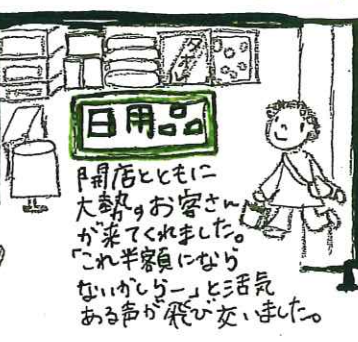 タオル
日用品
開店とともに
大勢のお客さん
が来てくれました。
「これ半額になら
ないかしらー」と活気
ある声が飛び交いました。